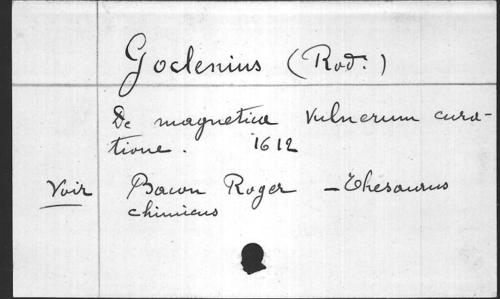 Goclenius (Rod.)
De magnetica vulnerum cura-
tione. 1612
Voir Bacon Roger - Thesaurus
chimicus